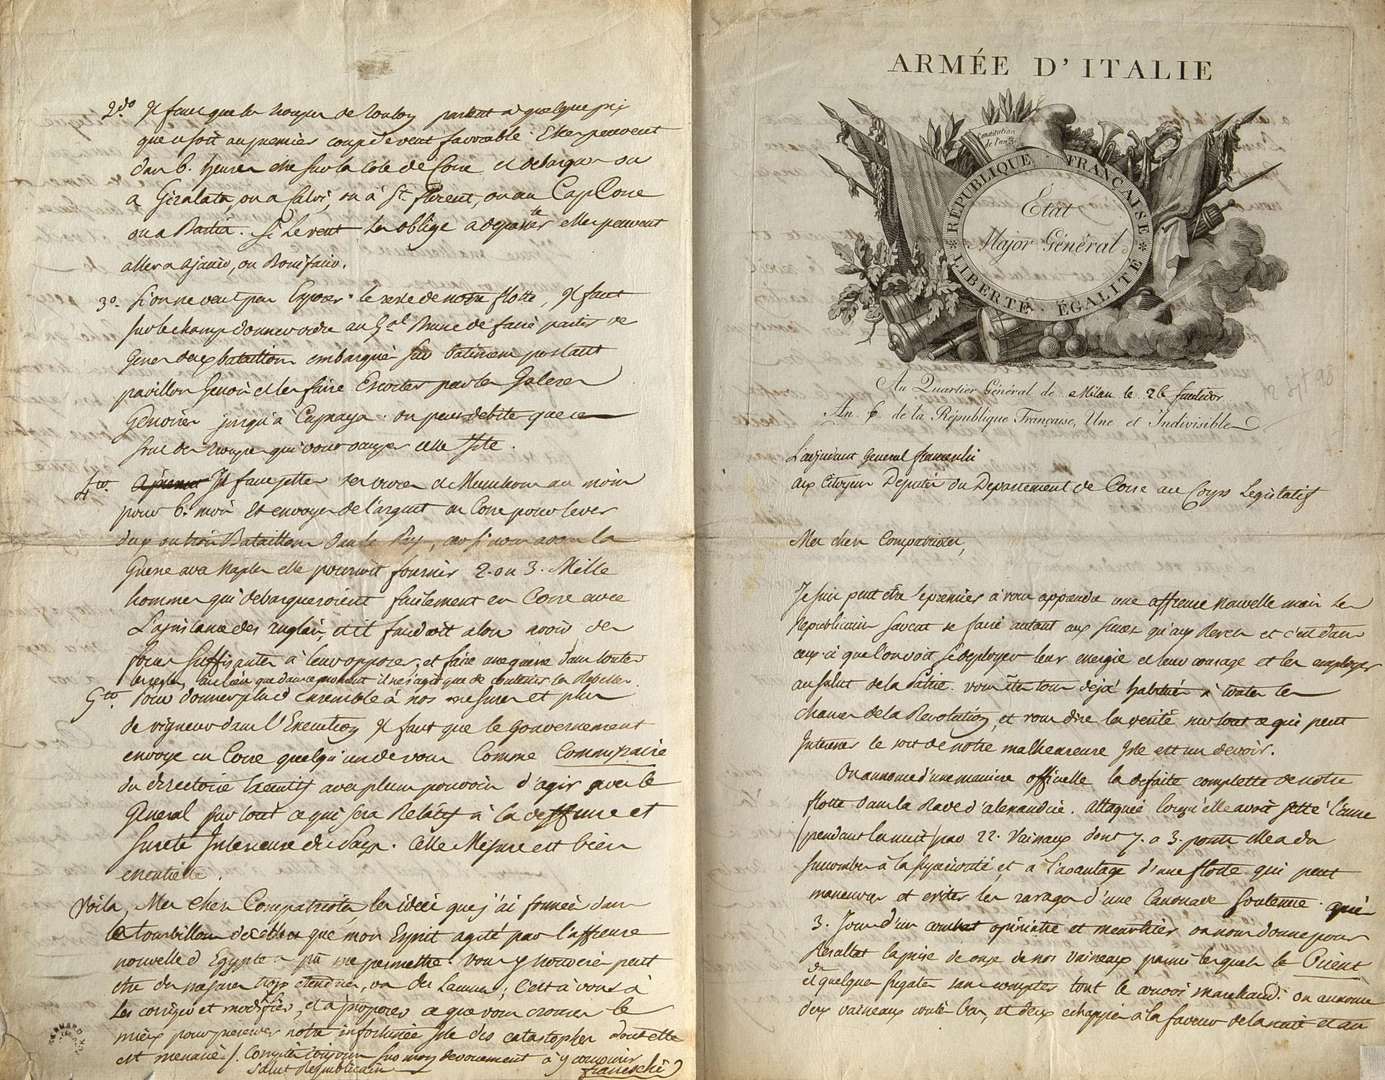 2do Il faut que les troupes de Toulon partent à quelque prix
que ce soit au premier coup de vent favorable. Elles peuvent
dans 6. heures être sur la Cote de Corse et debarquer ou
a Giralata, ou a Calvi, ou à St. florent, ou au Cap Corse
ou a Bastia. Si le vent les oblige a depasser elles peuvent
aller a Ajaccio, ou Bonifacio.
3o. Si on ne veut pas exposer le reste de notre flotte, Il faut
sur le champ donner ordre au Gal. Brune de faire partir de
Genes deux bataillons embarqués sur batiment portant
pavillon Genois et les faire Escorter par les Galeres
Genoises jusqu'à Capraya. on peut debiter que ce
sont des troupes qui vont occuper cette Isle.
4to. Il faut jetter des vivres et Munitions au moins
pour 6. mois et envoyer de l'argent en Corse pour lever
deux ou trois Bataillons dans le Pays, car si nous avons la
Guerre avec Naples elle pourroit fournir 2. ou 3. Mille
hommes qui debarqueroient facilement en Corse avec
l'assistance des anglais, et il faudroit alors avoir des
forces suffisantes à leur opposer, et faire une guerre dans toutes
les regles, au lieu que dans ce moment il ne s'agit que de contenir les Rebelles.
5to. Pour donner plus d'ensemble à nos mesures et plus
de vigueur dans l'Execution Il faut que le Gouvernement
envoye en Corse quelqu'un de vous Comme Commissaire
du directoire Executif avec plein pouvoir d'agir avec le
General sur tout ce qui sera Relatif à la deffense et
sureté Interieure du Pays. Cette Mesure est bien
essentielle.
Voila, Mes chers Compatriotes les idées que j'ai formées dans
le tourbillon que mon Esprit agité par l'affreuse
nouvelle d'Egypte a pu me permettre. Vous y trouverés peut
être des mesures trop etendues, ou des lacunes; c'est à vous à
les corriger et modifier, et à proposer ce que vous croirez le
mieux pour preserver notre infortunée Isle des catastrophes dont elle
est menacée. Comptés toujours sur mon devouement à y concourir
Salut Republicain
franceschi
ARMÉE D'ITALIE
Constitution
de l'an 3
RÉPUBLIQUE FRANÇAISE
État
Major Général
LIBERTÉ. ÉGALITÉ
Au Quartier Général de Milan le 26 fructidor
An 6 de la République Française, Une et Indivisible
12 Sept 98
L'adjudant General franceschi
aux Citoyens Deputés du Departement de Corse au Corps Legislatif
Mes chers Compatriotes,
Je suis peut être le premier à vous apprendre une affreuse nouvelle mais les
Republicains savent se faire autant aux succès qu'aux Revers et c'est dans
ceux-ci que l'on voit se deployer leur energie et leur courage et les employer
au salut de la Patrie. vous êtes tous déjà habitués à toutes les
chances de la Revolution, et vous dire la verité sur tout ce qui peut
Interesser le sort de notre malheureuse Isle est un devoir.
On annonce d'une maniere officielle la defaite complette de notre
flotte dans la Rade d'alexandrie. attaquée lorsqu'elle avoit jetté l'ancre
pendant la nuit par 22. Vaisseaux dont 7. a 3. ponts elle a du
succomber à la superiorité et a l'avantage d'une flotte qui peut
maneuvrer et eviter les ravages d'une Canonade soutenue. après
3. Jours d'un combat opiniatre et meurtrier on nous donne pour
Resultat la prise de onze de nos vaisseaux parmi lesquels le Orient
et quelques fregates sans compter tout le convoi marchand. on annonce
deux vaisseaux coulés bas, et deux echappés à la faveur de la nuit et au